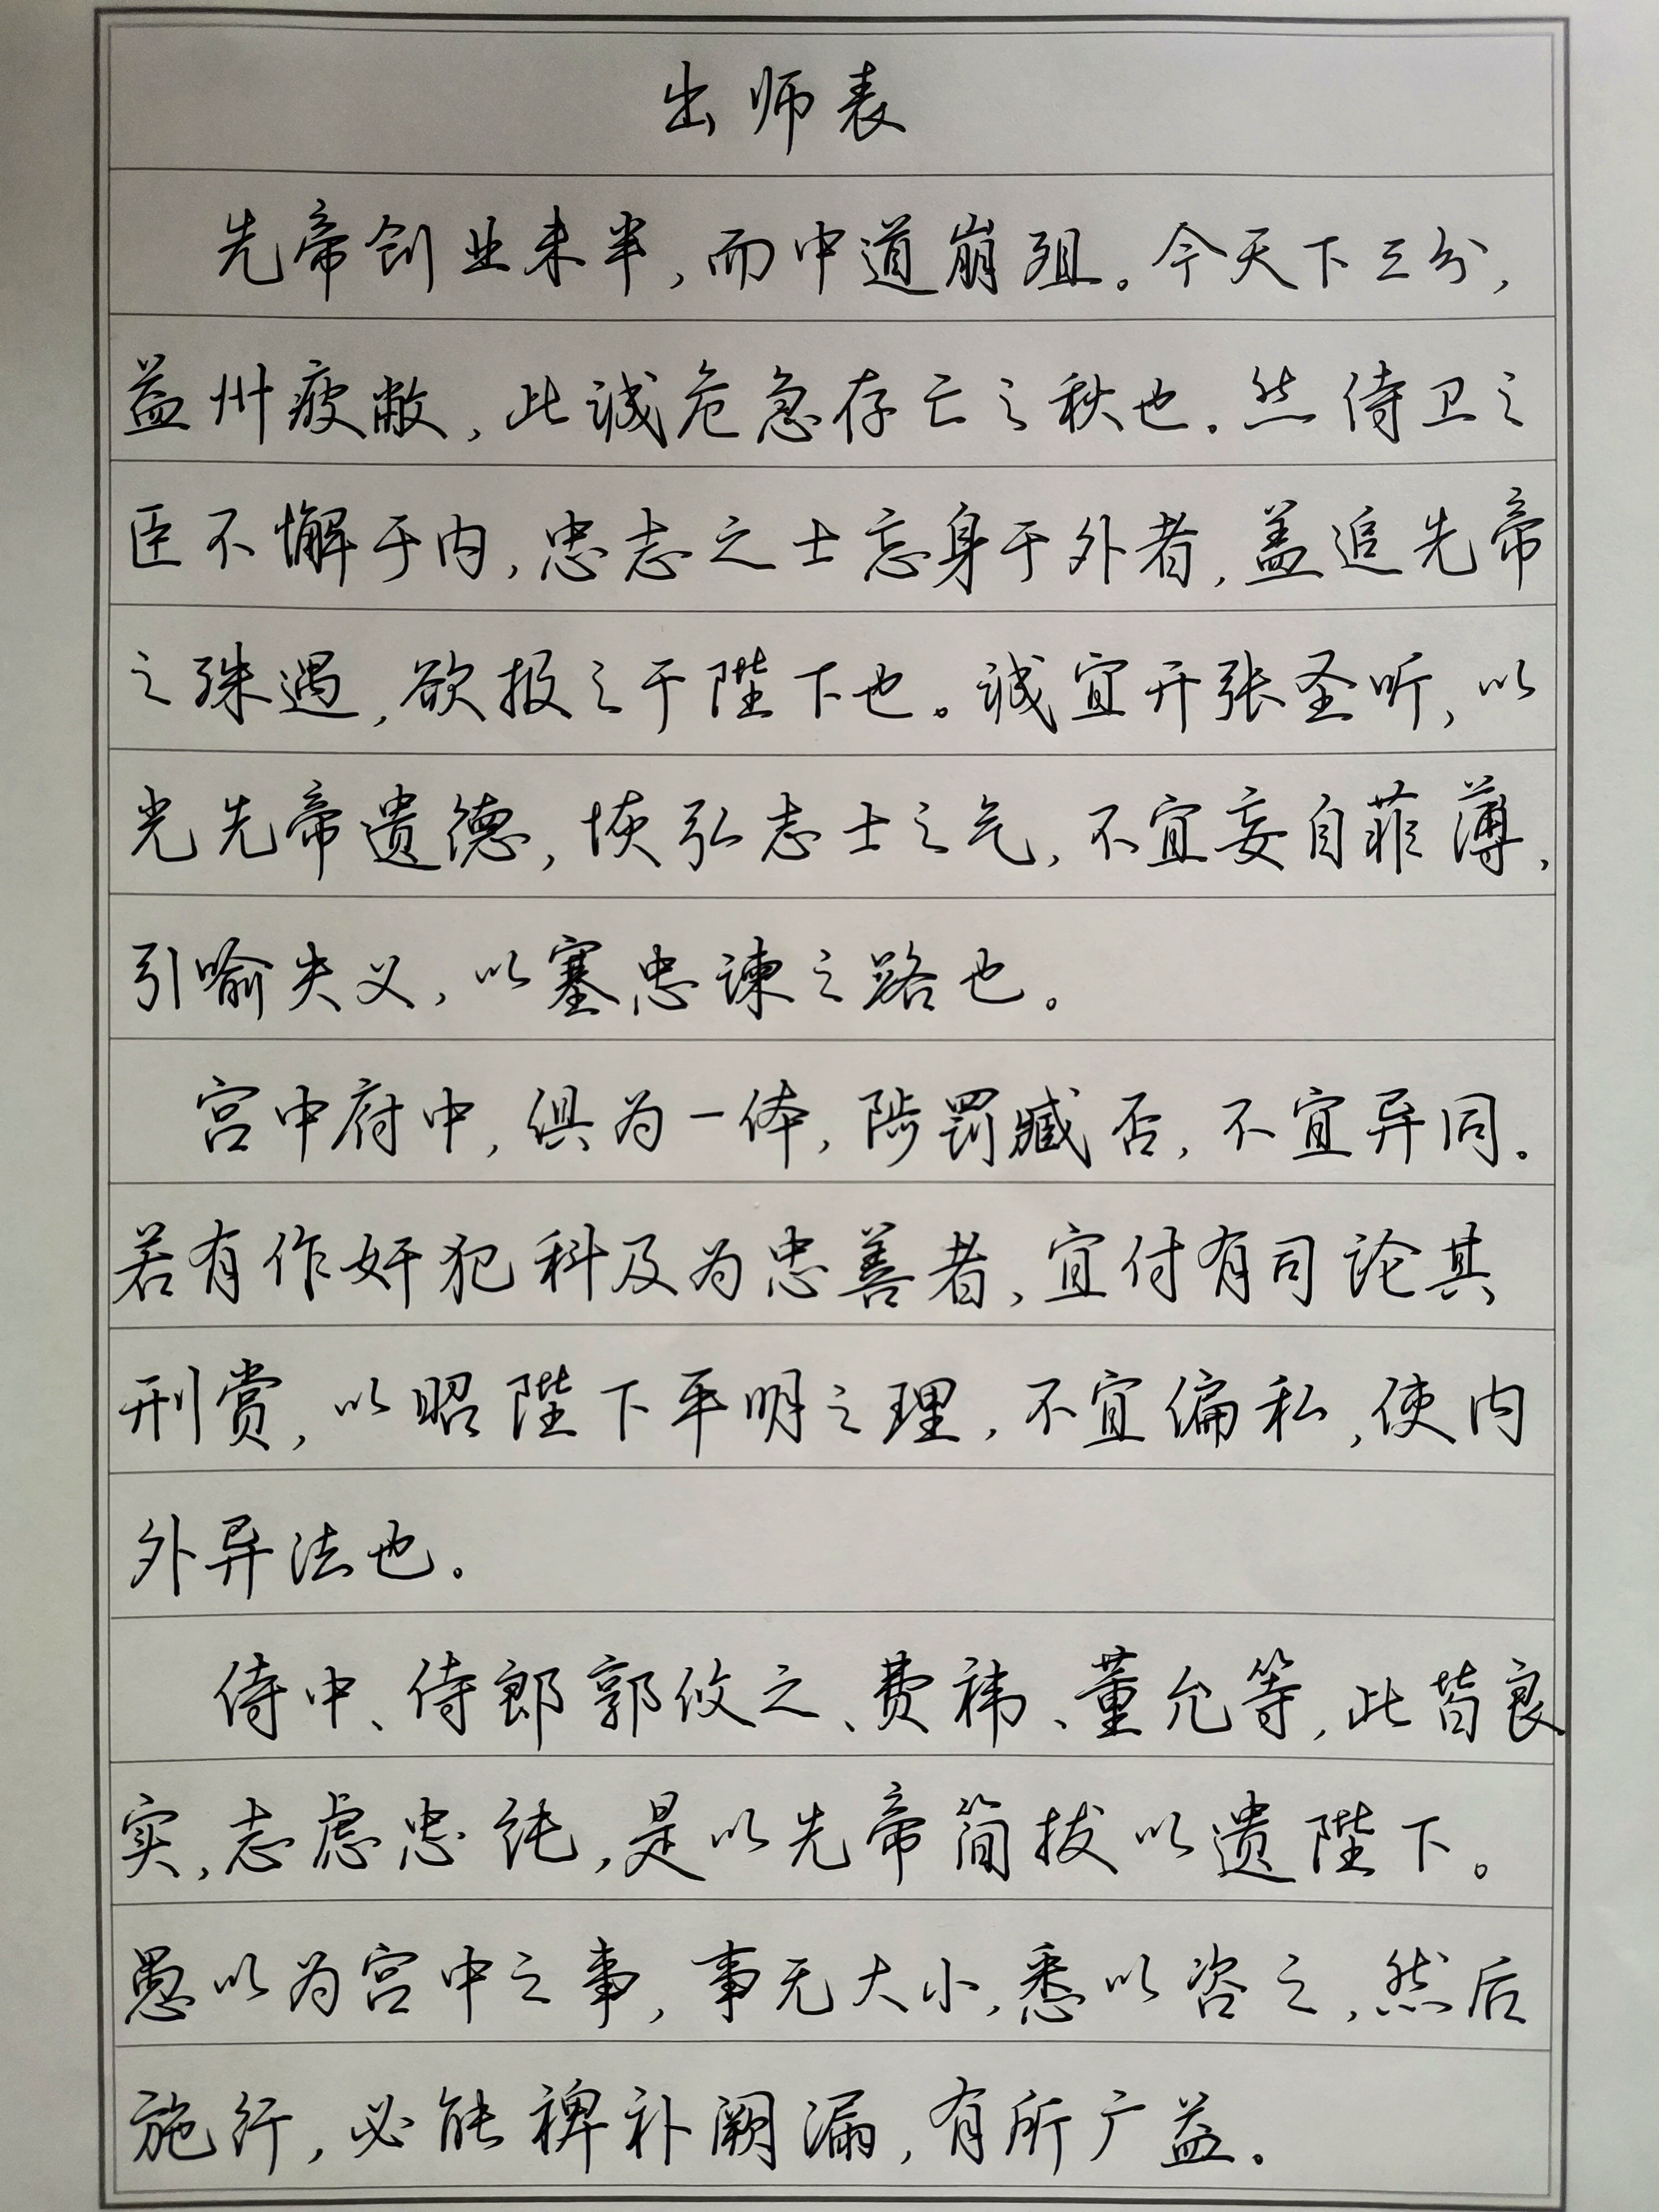 出师表
先帝创业未半,而中道崩殂。今天下三分,
益州疲敝,此诚危急存亡之秋也。然侍卫之
臣不懈于内,忠志之士忘身于外者,盖追先帝
之殊遇,欲报之于陛下也。诚宜开张圣听,以
光先帝遗德,恢弘志士之气,不宜妄自菲薄,
引喻失义,以塞忠谏之路也。
宫中府中,俱为一体,陟罚臧否,不宜异同。
若有作奸犯科及为忠善者,宜付有司论其
刑赏,以昭陛下平明之理,不宜偏私,使内
外异法也。
侍中、侍郎郭攸之、费祎、董允等,此皆良
实,志虑忠纯,是以先帝简拔以遗陛下。
愚以为宫中之事,事无大小,悉以咨之,然后
施行,必能裨补阙漏,有所广益。